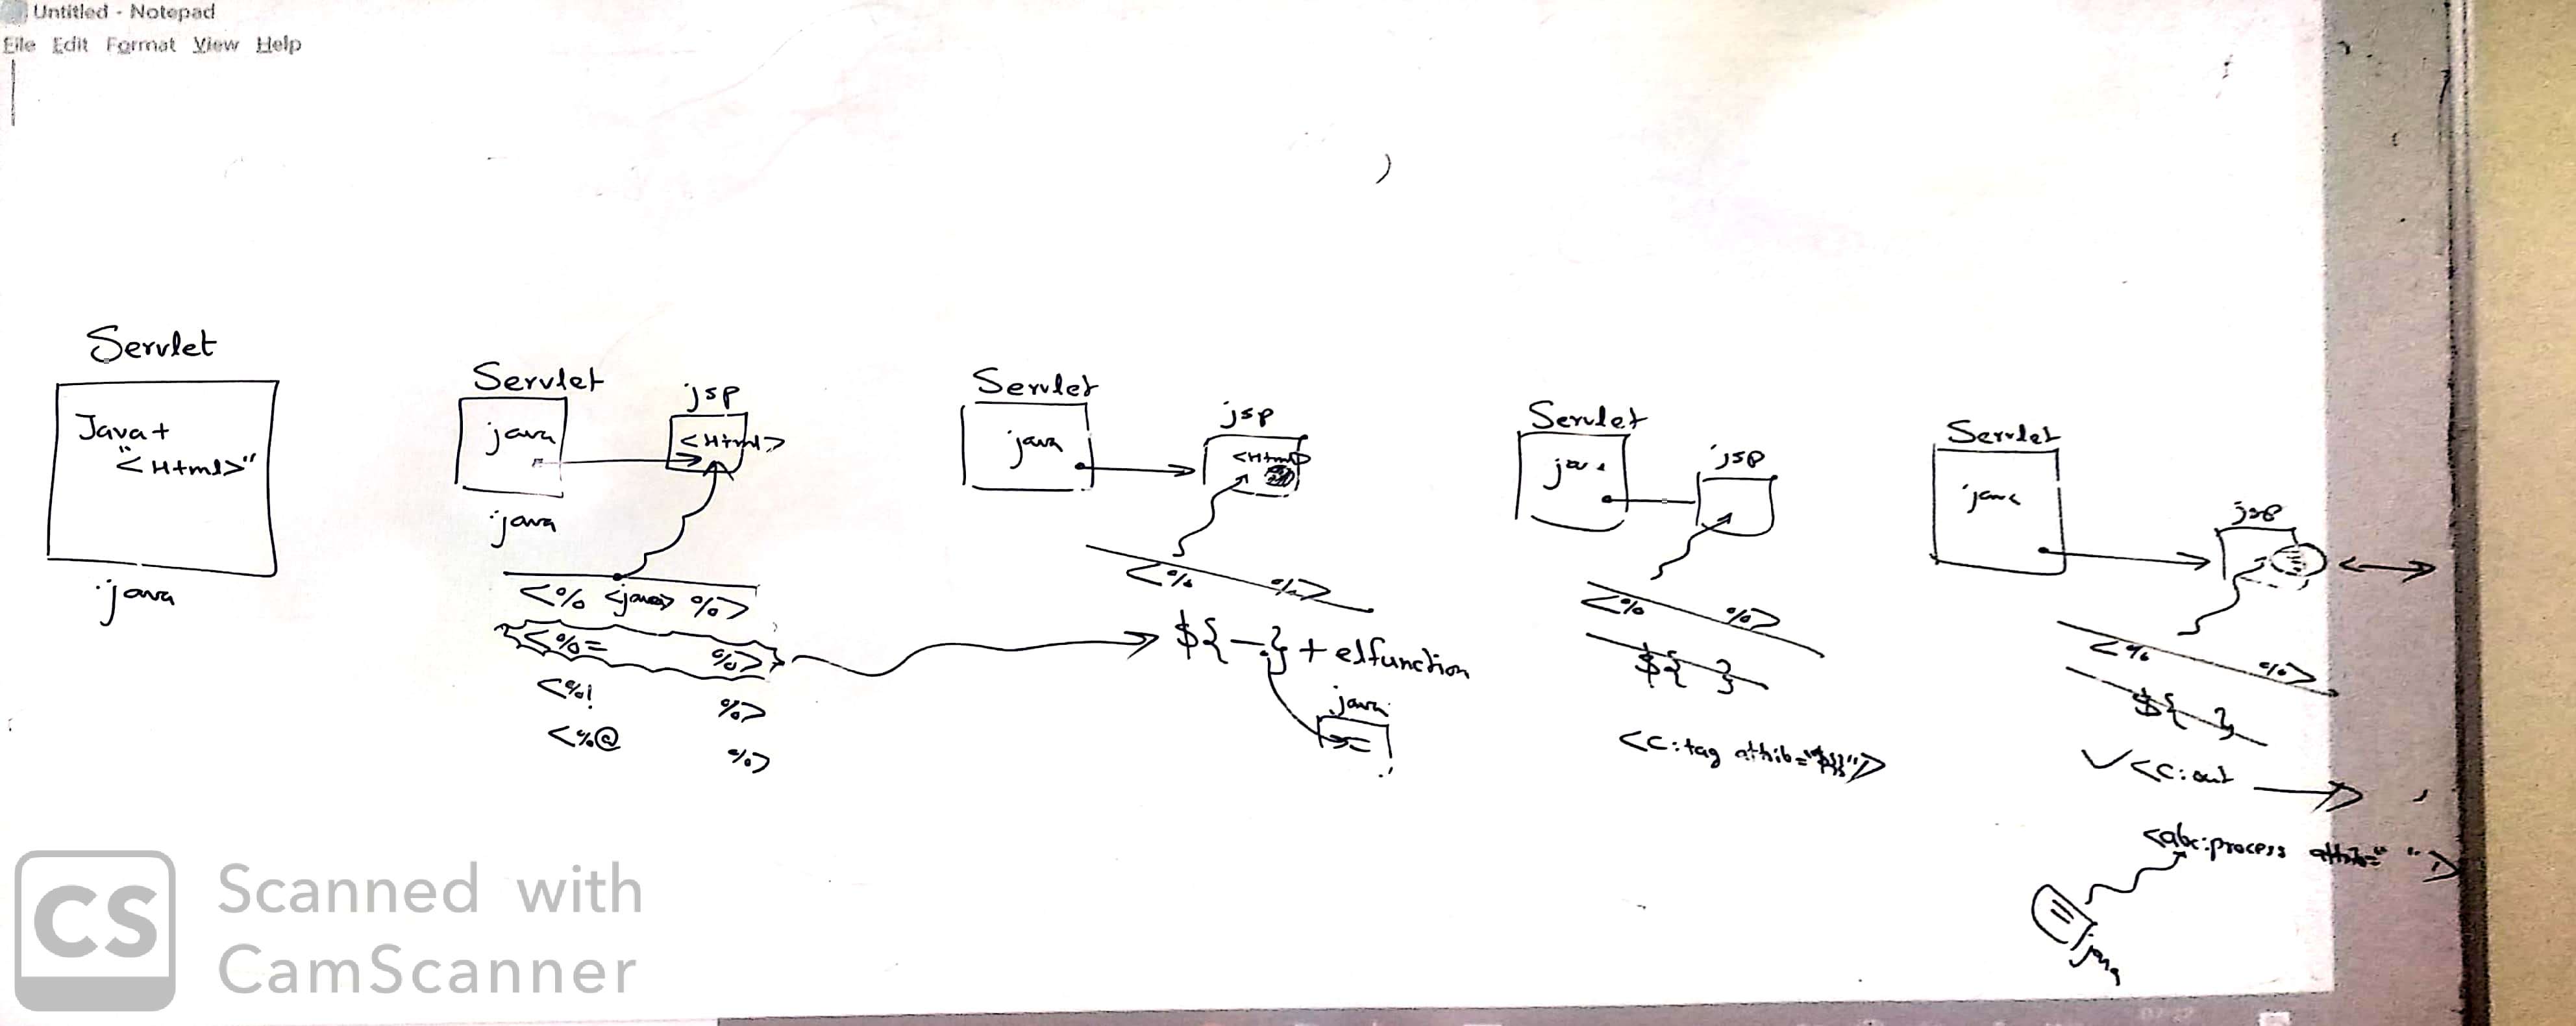 Untitled - Notepad
File Edit Format View Help
Servlet
Java+
"<Html>"
.java
Servlet
java
.java
jsp
<Html>
<% <java> %>
<%= %>
<%! %>
<%@ %>
Servlet
java
jsp
<Html>
<% %>
${—.} + elfunction
java
Servlet
jsp
<% %>
${ }
<c:tag attrib="${}"/>
Servlet
java
jsp
<% %>
${ }
<c:out
<abc:process attrib=" "/>
.java
CS
Scanned with
CamScanner